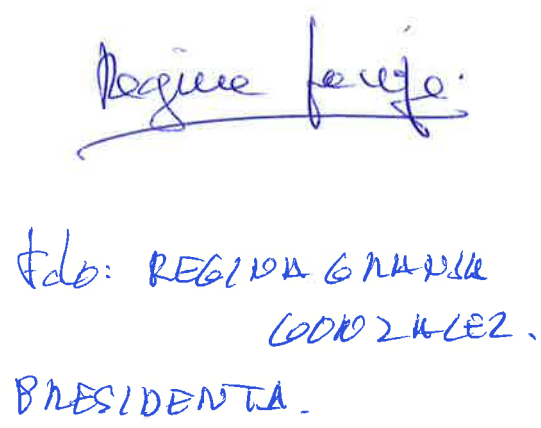 Regina Granja
Fdo: REGINA GRANJA
GONZALEZ.
PRESIDENTA.